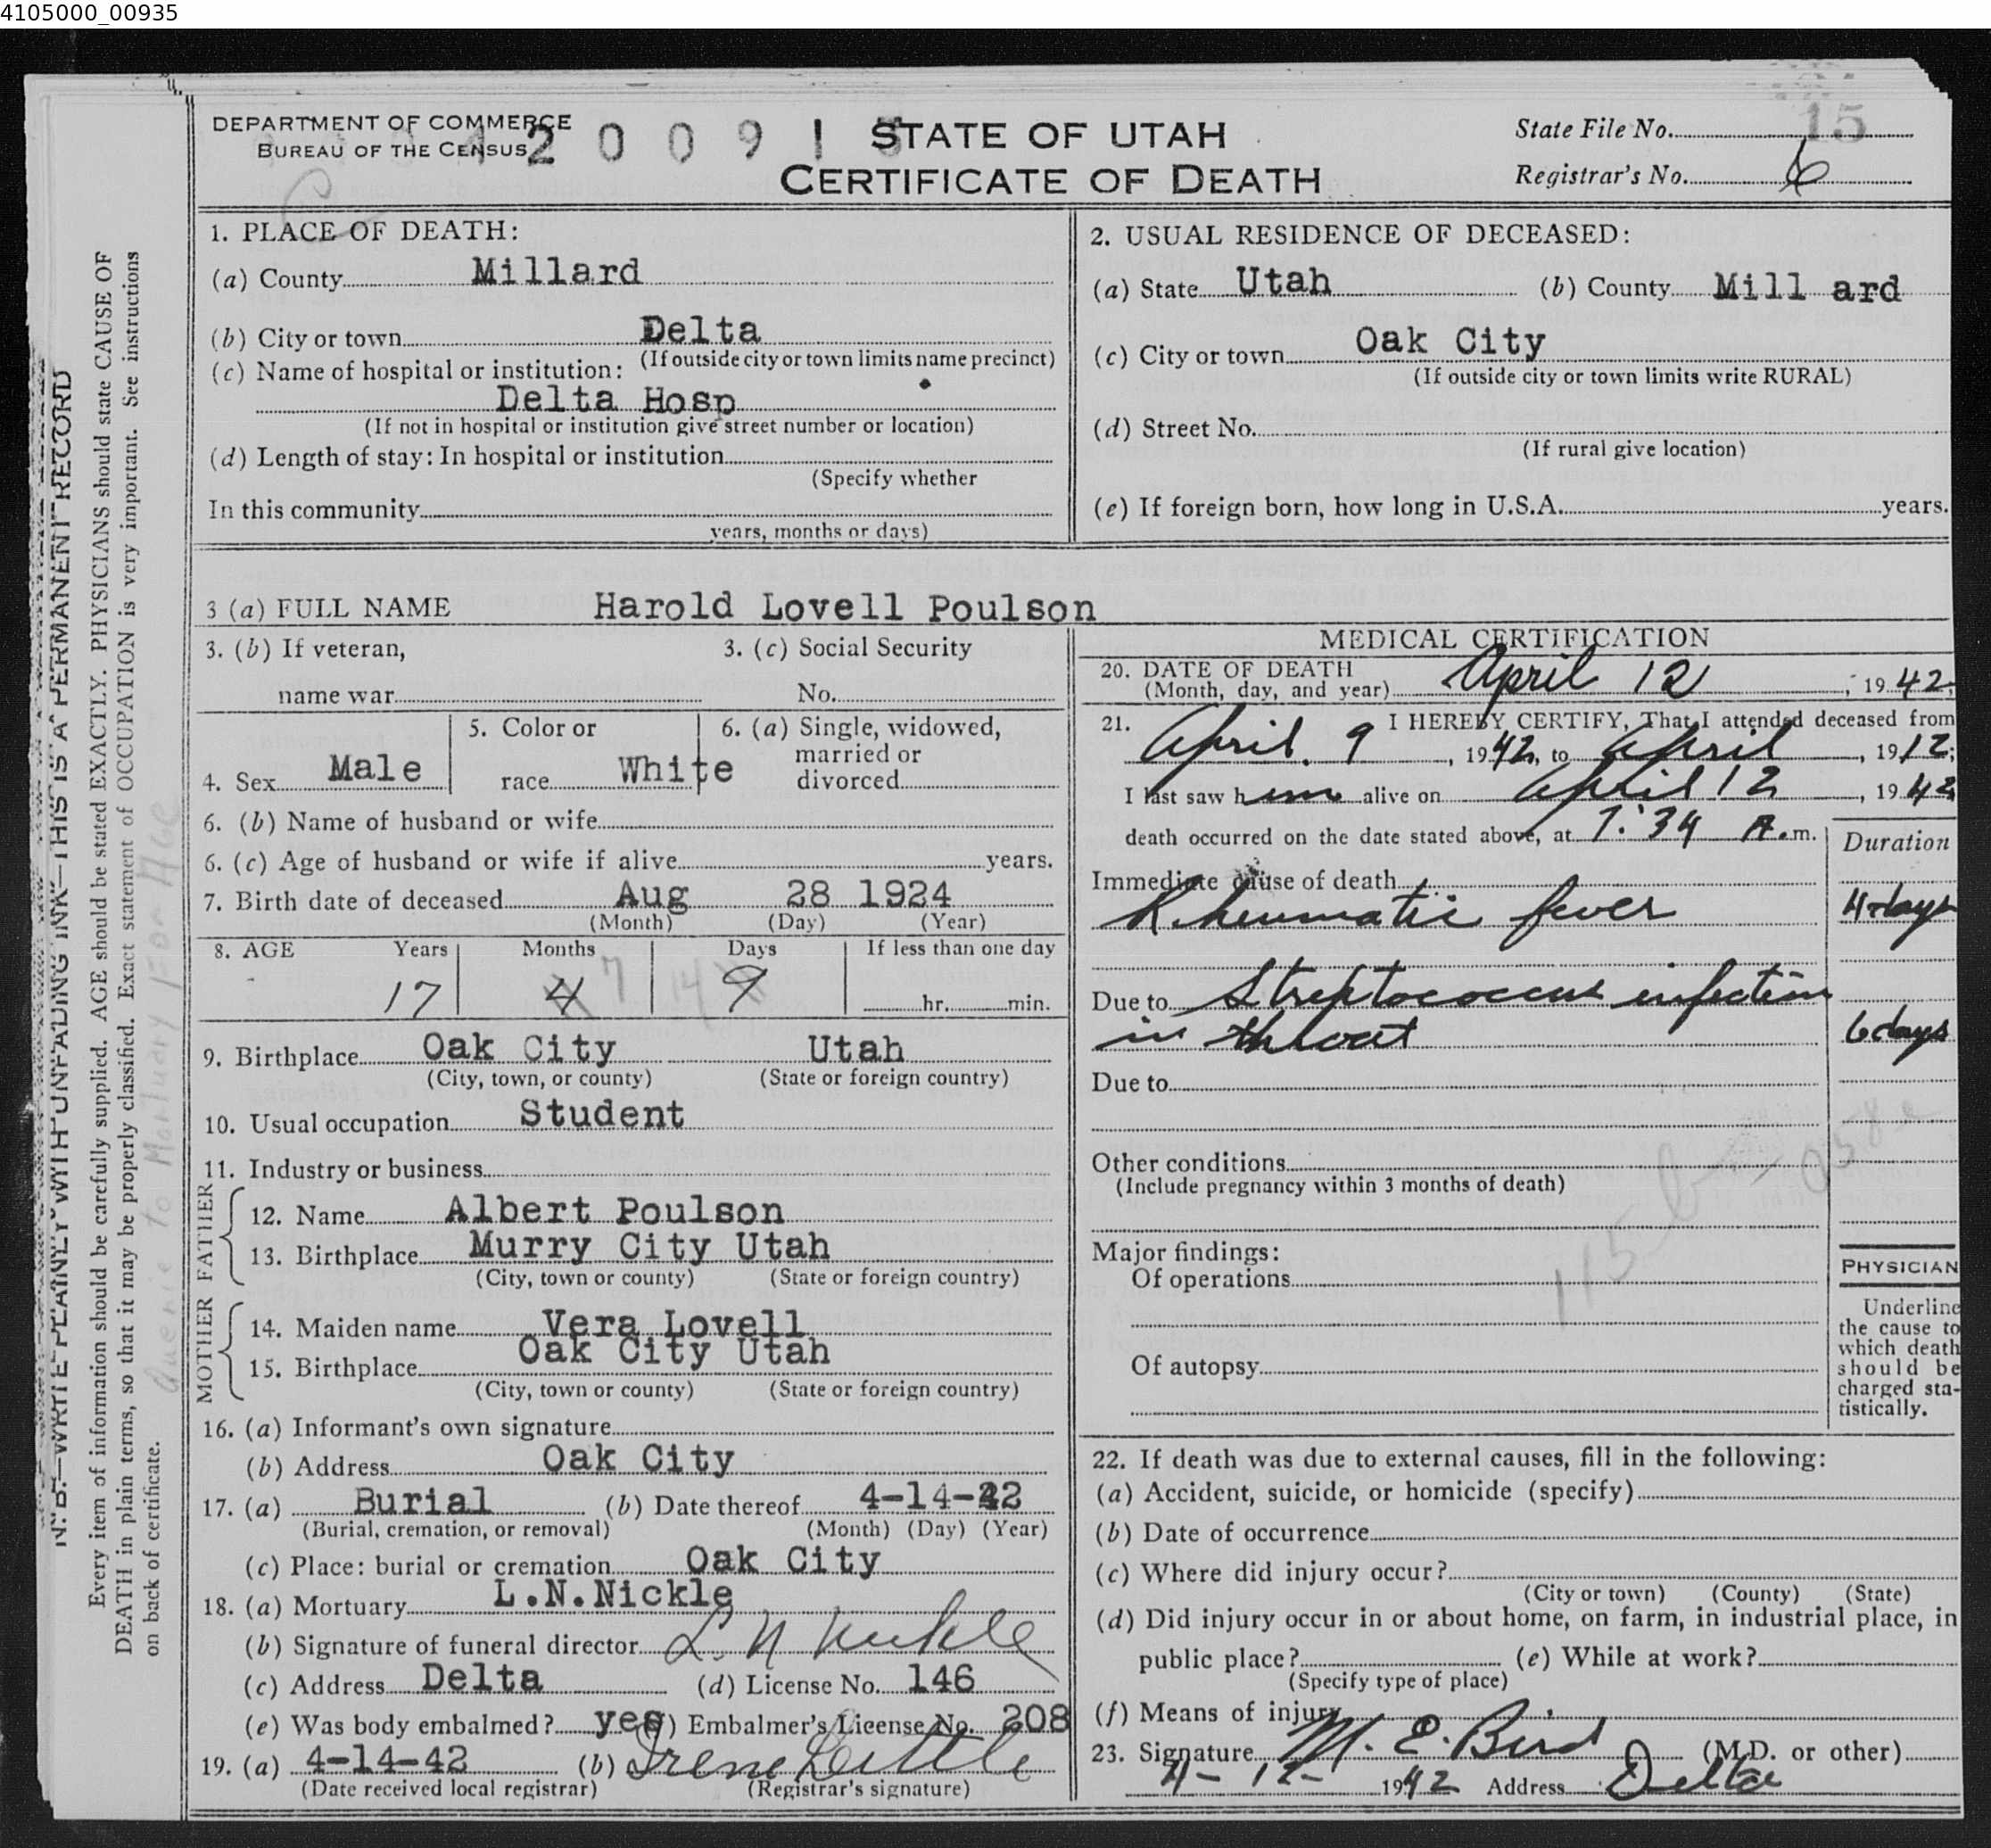 4105000_00935
DEPARTMENT OF COMMERCE
BUREAU OF THE CENSUS
2 0 0 9 1 5
STATE OF UTAH
CERTIFICATE OF DEATH
State File No. 15
Registrar's No. 6
1. PLACE OF DEATH:
(a) County Millard
(b) City or town Delta
(If outside city or town limits name precinct)
(c) Name of hospital or institution:
Delta Hosp
(If not in hospital or institution give street number or location)
(d) Length of stay: In hospital or institution
(Specify whether
In this community
years, months or days)
2. USUAL RESIDENCE OF DECEASED:
(a) State Utah (b) County Mill ard
(c) City or town Oak City
(If outside city or town limits write RURAL)
(d) Street No.
(If rural give location)
(e) If foreign born, how long in U.S.A. years.
3 (a) FULL NAME Harold Lovell Poulson
3. (b) If veteran,
name war
3. (c) Social Security
No.
4. Sex Male
5. Color or
race White
6. (a) Single, widowed,
married or
divorced
6. (b) Name of husband or wife
6. (c) Age of husband or wife if alive years.
7. Birth date of deceased Aug 28 1924
(Month) (Day) (Year)
8. AGE Years Months Days If less than one day
17 4 7 14 9 hr. min.
9. Birthplace Oak City Utah
(City, town, or county) (State or foreign country)
10. Usual occupation Student
11. Industry or business
FATHER
12. Name Albert Poulson
13. Birthplace Murry City Utah
(City, town or county) (State or foreign country)
MOTHER
14. Maiden name Vera Lovell
15. Birthplace Oak City Utah
(City, town or county) (State or foreign country)
16. (a) Informant's own signature
(b) Address Oak City
17. (a) Burial (b) Date thereof 4-14-42
(Burial, cremation, or removal) (Month) (Day) (Year)
(c) Place: burial or cremation Oak City
18. (a) Mortuary L.N.Nickle
(b) Signature of funeral director L. N Nickle
(c) Address Delta (d) License No. 146
(e) Was body embalmed? yes (f) Embalmer's License No. 208
19. (a) 4-14-42 (b) Irene Little
(Date received local registrar) (Registrar's signature)
MEDICAL CERTIFICATION
20. DATE OF DEATH
(Month, day, and year) April 12, 1942;
21. I HEREBY CERTIFY, That I attended deceased from
April 9, 1942, to April, 1912;
I last saw him alive on April 12, 1942
death occurred on the date stated above, at 7:34 A.m.
Duration
Immediate cause of death
Rheumatic fever 4 days
Due to Streptococcus infection
in throat 6 days
Due to
Other conditions
(Include pregnancy within 3 months of death)
Major findings:
Of operations
Of autopsy
PHYSICIAN
Underline
the cause to
which death
should be
charged sta-
tistically.
22. If death was due to external causes, fill in the following:
(a) Accident, suicide, or homicide (specify)
(b) Date of occurrence
(c) Where did injury occur?
(City or town) (County) (State)
(d) Did injury occur in or about home, on farm, in industrial place, in
public place? (e) While at work?
(Specify type of place)
(f) Means of injury
23. Signature M. E. Bird (M.D. or other)
4-12- 1942 Address Delta
N. B.—WRITE PLAINLY WITH UNFADING INK—THIS IS A PERMANENT RECORD
Every item of information should be carefully supplied. AGE should be stated EXACTLY. PHYSICIANS should state CAUSE OF
DEATH in plain terms, so that it may be properly classified. Exact statement of OCCUPATION is very important. See instructions
on back of certificate.